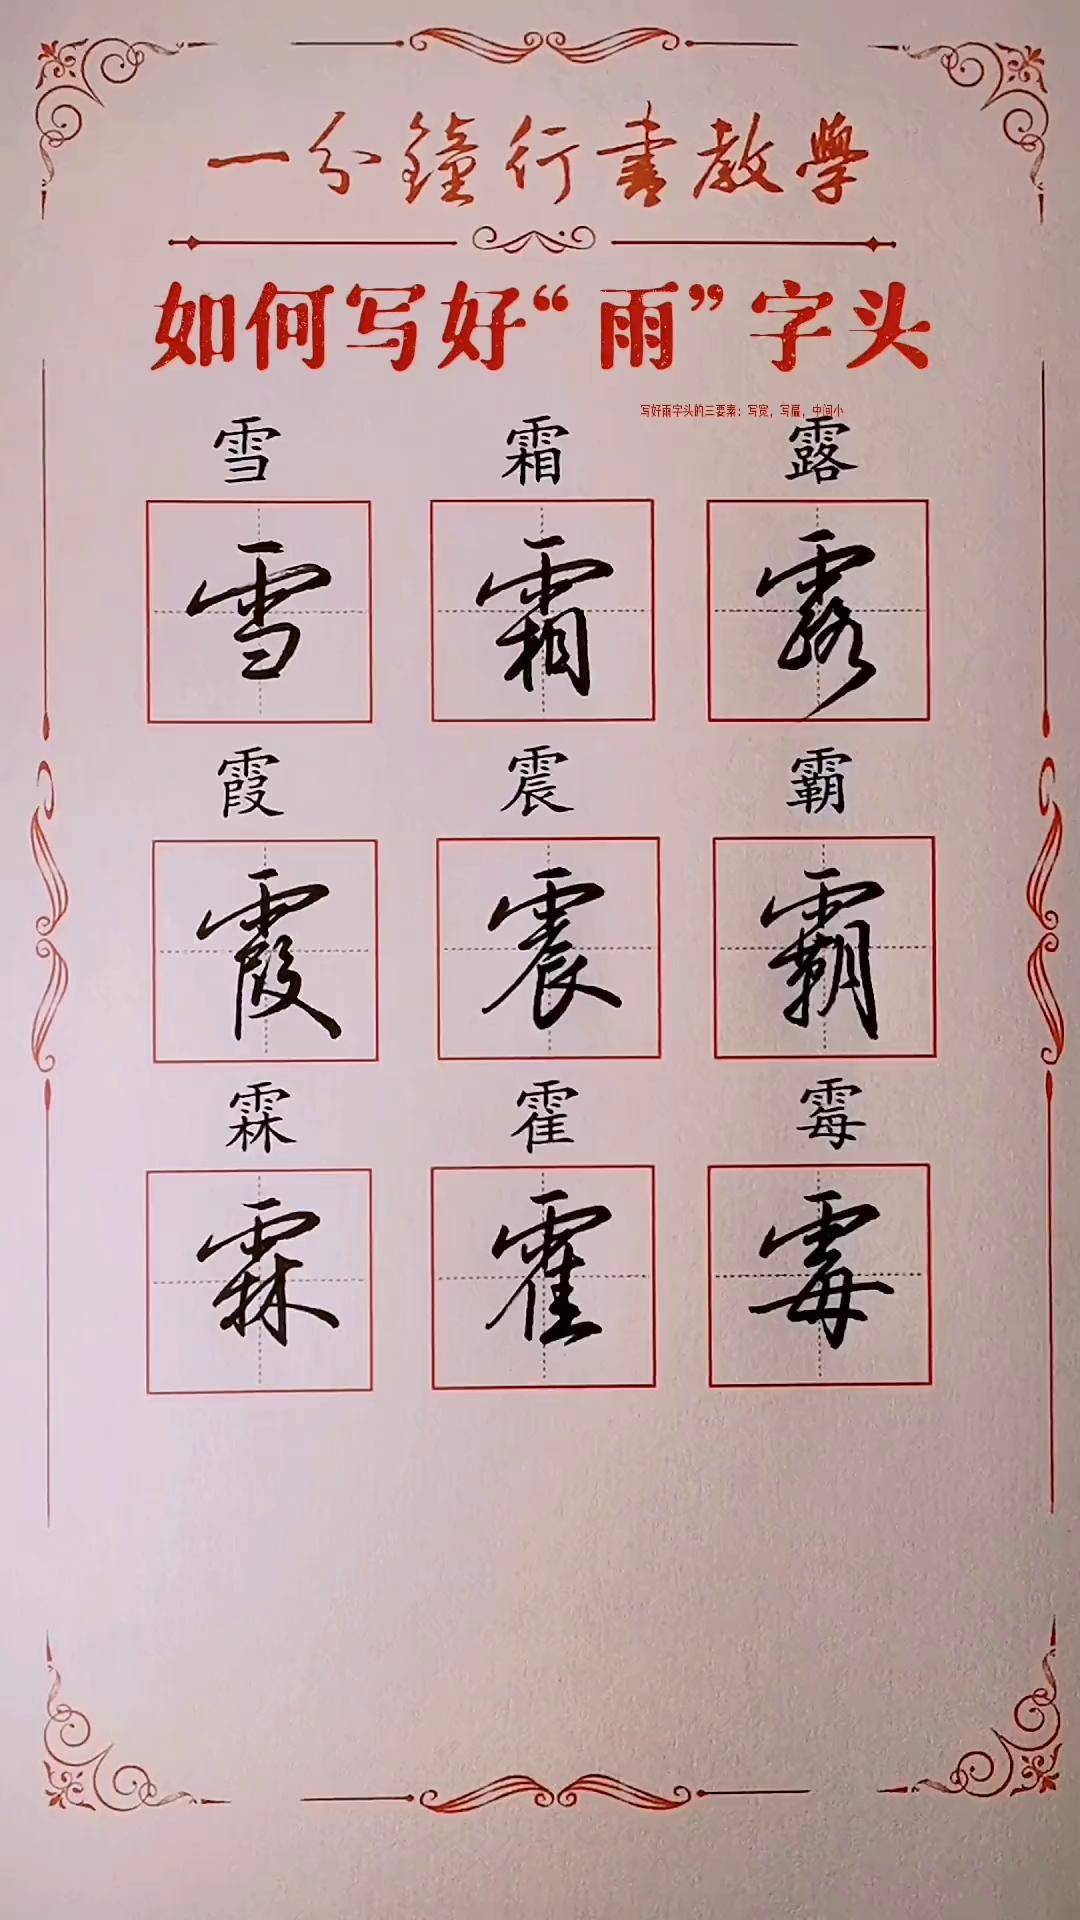 一分鐘行書教學
如何写好“雨”字头
写好雨字头的三要素：写宽，写扁，中间小
雪 霜 露
雪 霜 露
霞 震 霸
霞 震 霸
霖 霍 霉
霖 霍 霉